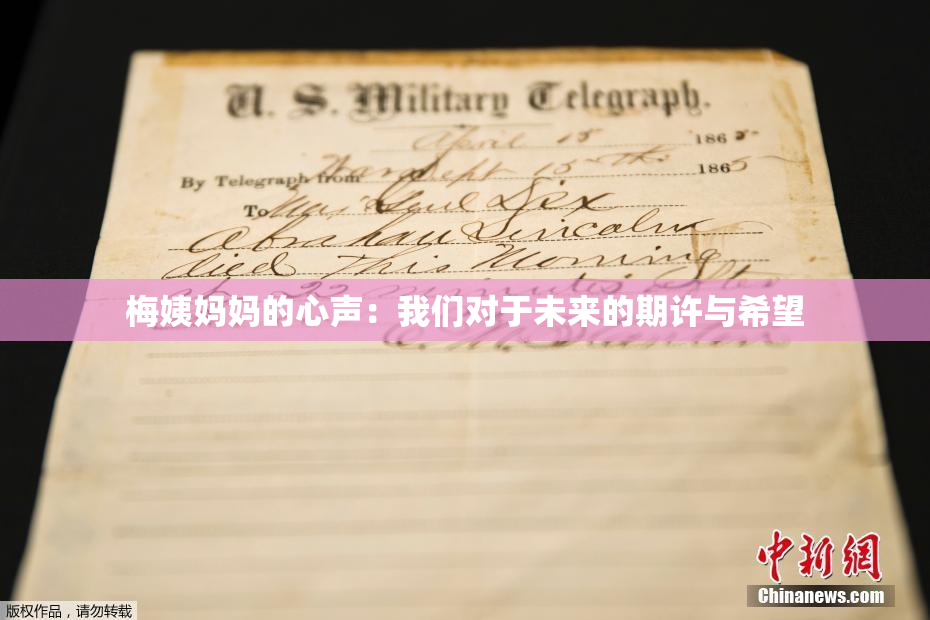 U. S. Military Telegraph.
April 15 1865
By Telegraph from War Dept 15th 1865
To Maj Genl Dix
Abraham Lincoln
died This Morning
at 22 minutes after
梅姨妈妈的心声：我们对于未来的期许与希望
中新网
Chinanews.com
版权作品，请勿转载